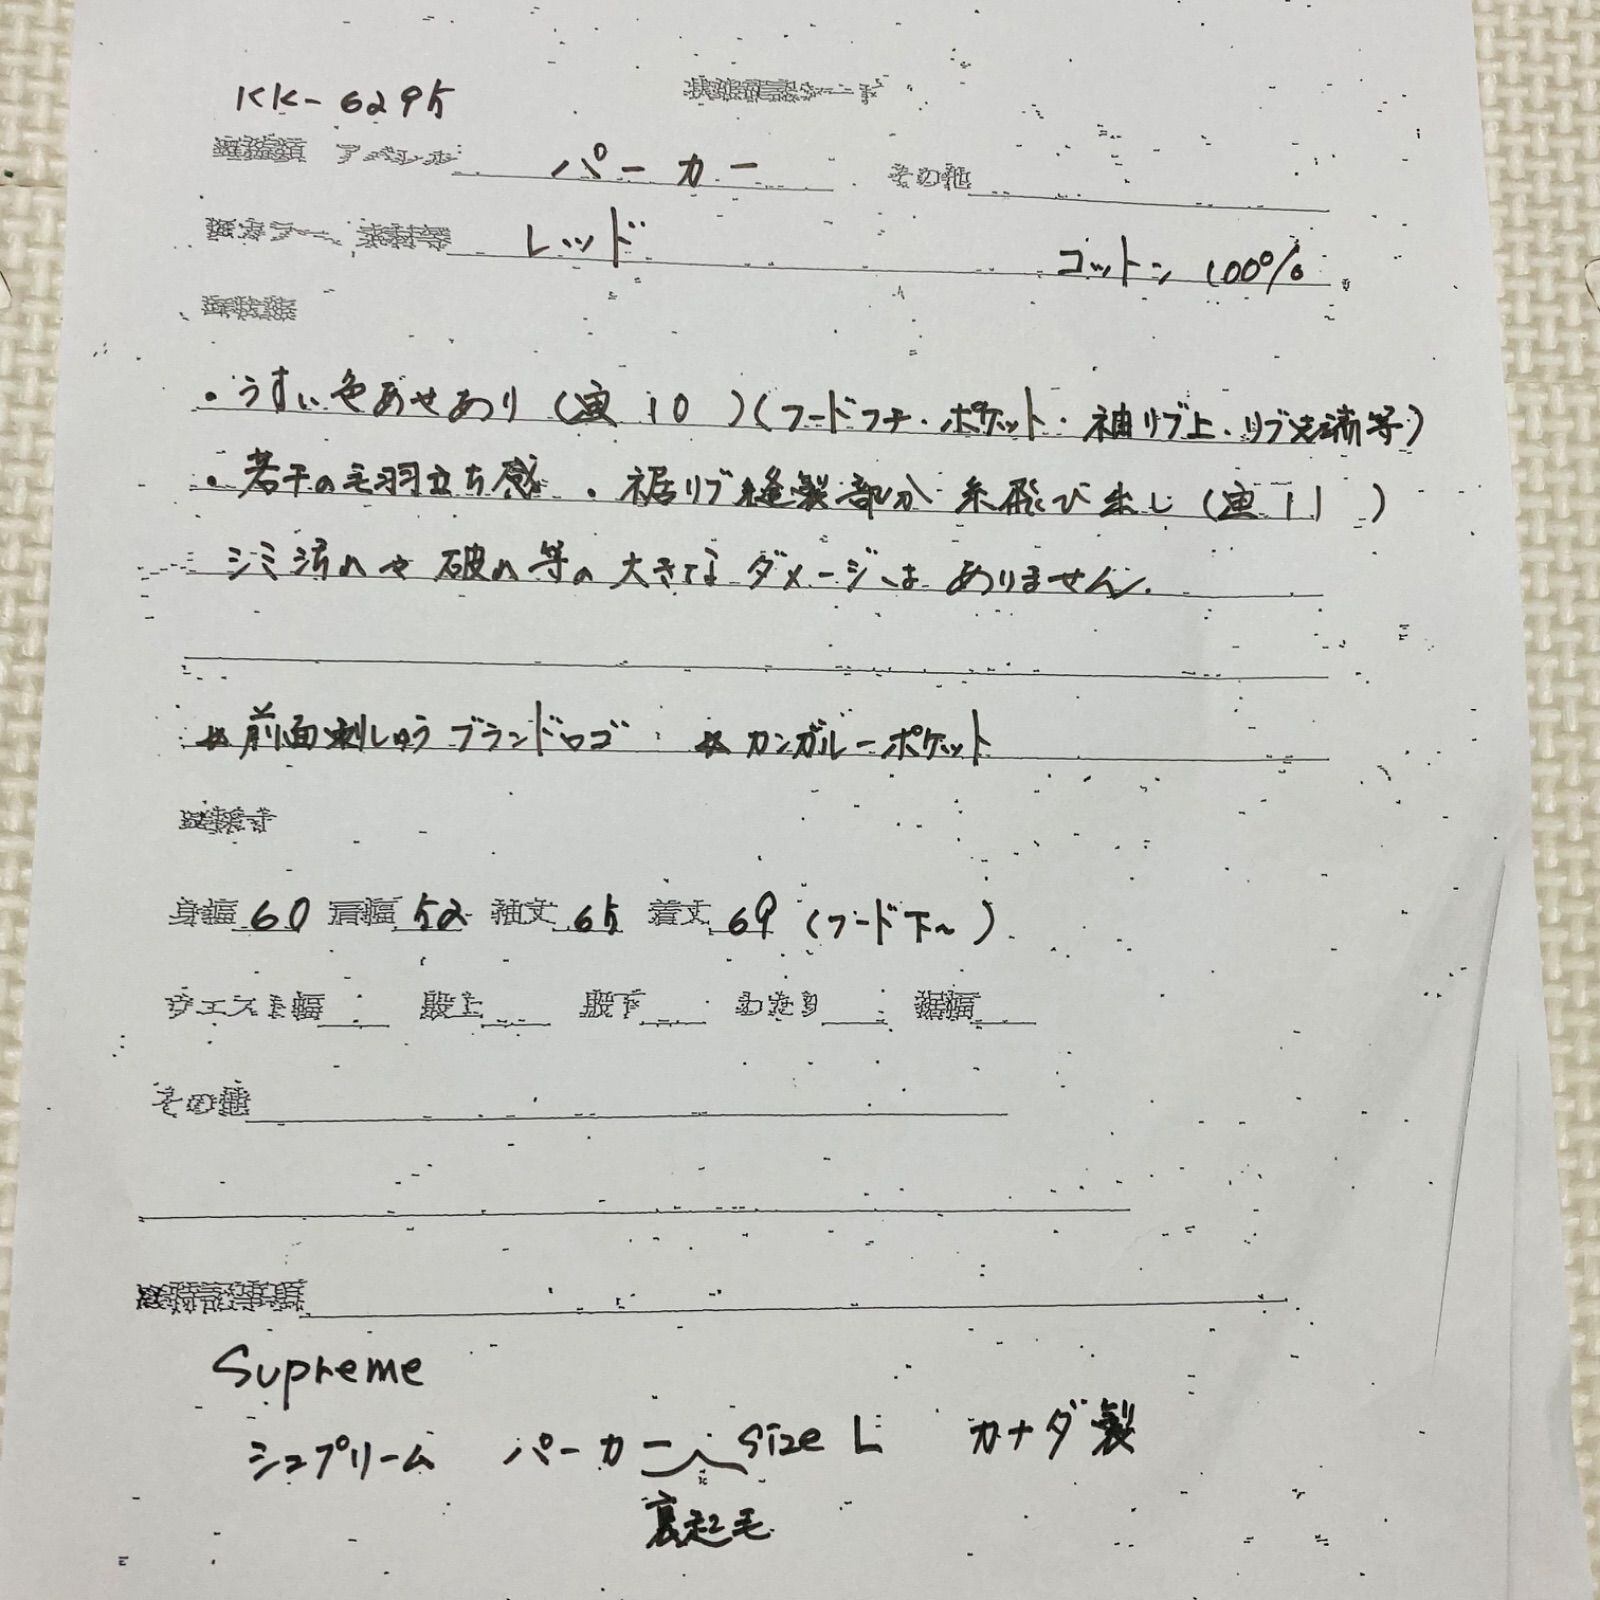 KK-6295 状態確認シード
■種類 アパレル パーカー その他
■カラー、素材等 レッド コットン 100%
■状態
・うすい色あせあり (画10 )(フードフチ・ポケット・袖リブ上・リブ先端等)
・若干の毛羽立ち感 ・裾リブ縫製部分 糸飛び出し (画11 )
シミ汚れや破れ等の大きなダメージはありません。
☆前面刺しゅうブランドロゴ ☆カンガルーポケット
■採寸
身幅 60 肩幅 52 袖丈 65 着丈 69 (フード下〜)
ウエスト幅 股上 股下 わたり 裾幅
その他
※特記事項
Supreme
シュプリーム パーカー size L カナダ製
裏起毛